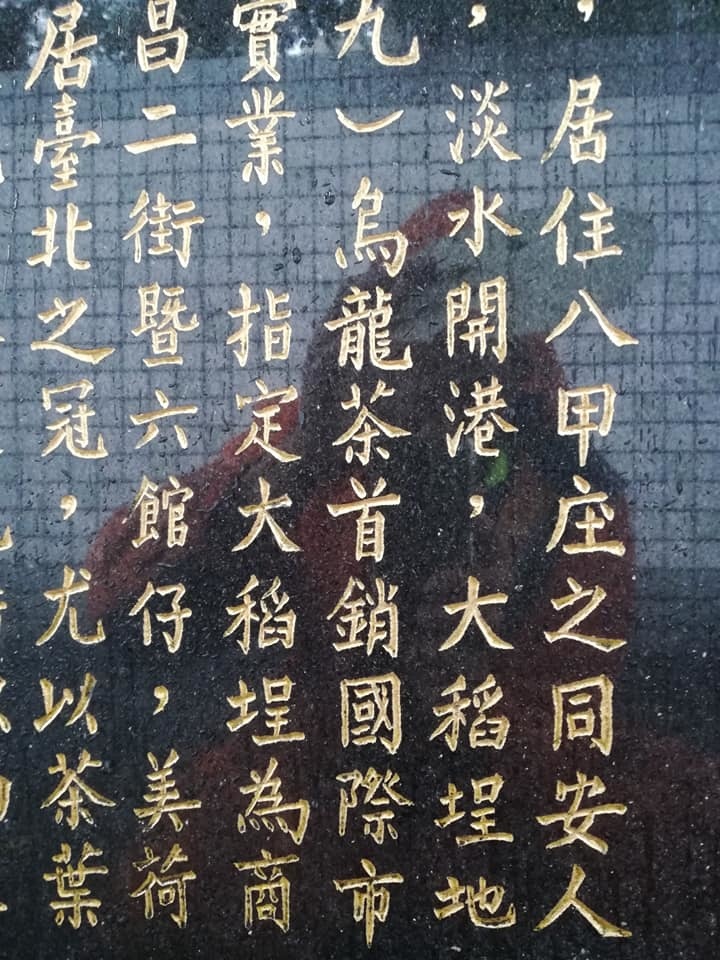 ，居住八甲庄之同安人
，淡水開港，大稻埕地
九）烏龍茶首銷國際市
實業，指定大稻埕為商
昌二街暨六館仔，美荷
居臺北之冠，尤以茶葉